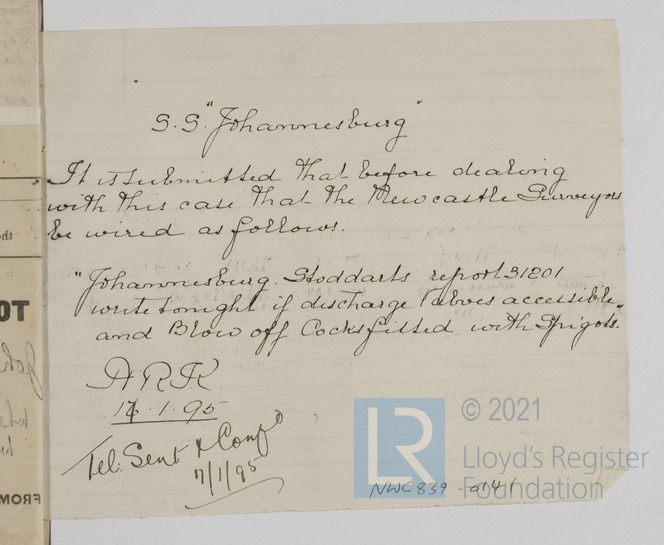 S.S. "Johannesburg"
It is submitted that before dealing
with this case that the Newcastle Surveyors
be wired as follows.
"Johannesburg. Stoddarts report 31201
write tonight if discharge valves accessible
and Blow off Cocks fitted with Spigots."
17.1.95
Tel. Sent & Conf^d
7/1/95
NWC839-0141
LR
© 2021
Lloyd's Register
Foundation
FROM